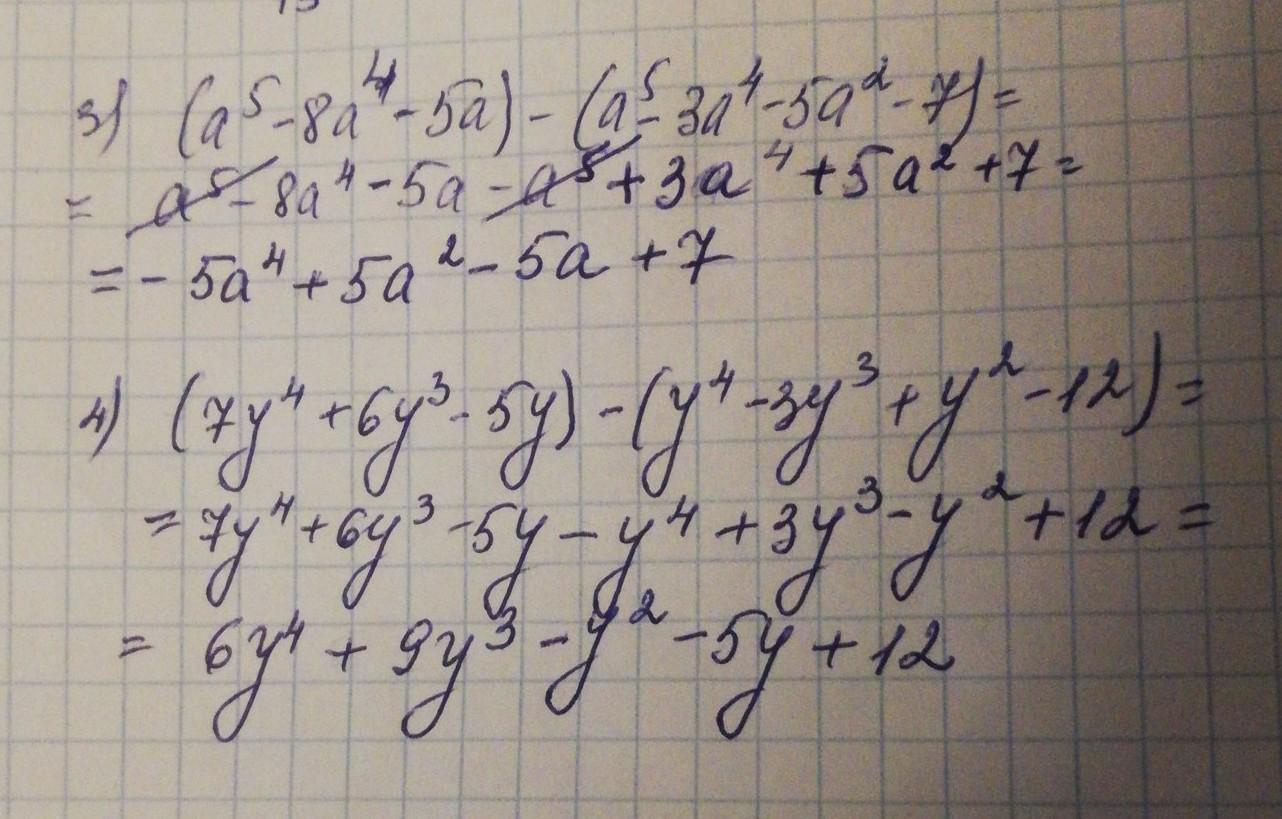 3) (a⁵ - 8a⁴ - 5a) - (a⁵ - 3a⁴ - 5a² - 7) =
= a⁵ - 8a⁴ - 5a - a⁵ + 3a⁴ + 5a² + 7 =
= - 5a⁴ + 5a² - 5a + 7
4) (7y⁴ + 6y³ - 5y) - (y⁴ - 3y³ + y² - 12) =
= 7y⁴ + 6y³ - 5y - y⁴ + 3y³ - y² + 12 =
= 6y⁴ + 9y³ - y² - 5y + 12